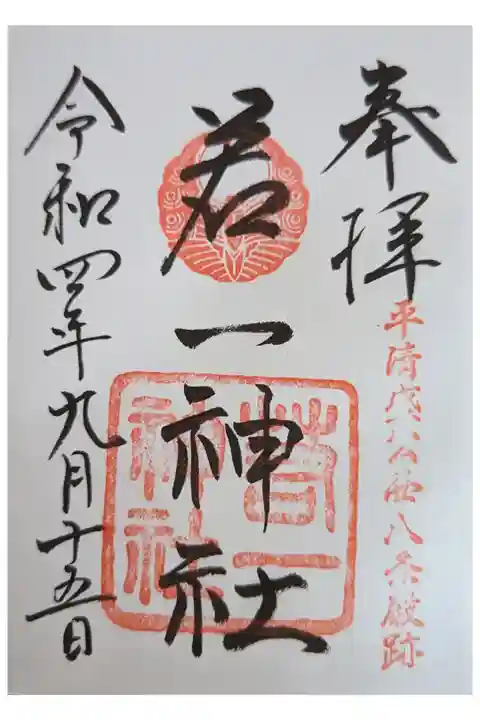 奉拝
平清盛公の西八条殿跡
若一神社
若一
神社
令和四年九月十五日